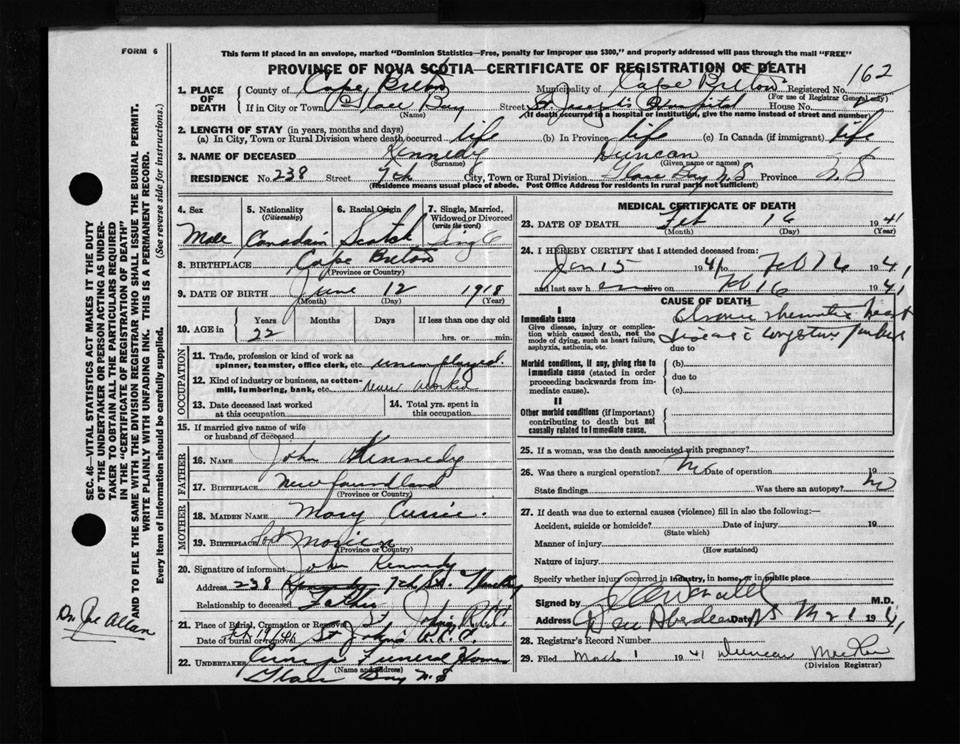 FORM 6
This form if placed in an envelope, marked "Dominion Statistics—Free, penalty for improper use $300," and properly addressed will pass through the mail "FREE"
PROVINCE OF NOVA SCOTIA—CERTIFICATE OF REGISTRATION OF DEATH
162
1. PLACE OF DEATH
County of Cape Breton Municipality of Cape Breton Registered No.
(For use of Registrar General only)
If in City or Town Glace Bay Street St Joseph's Hospital House No.
(Name) (If death occurred in a hospital or institution, give the name instead of street and number)
2. LENGTH OF STAY (in years, months and days)
(a) In City, Town or Rural Division where death occurred life (b) In Province life (c) In Canada (if immigrant) life
3. NAME OF DECEASED Kennedy Duncan
(Surname) (Given name or names)
RESIDENCE No. 238 Street 7th City, Town or Rural Division Glace Bay N.S Province N.S
(Residence means usual place of abode. Post Office Address for residents in rural parts not sufficient)
4. Sex Male
5. Nationality (Citizenship) Canadian
6. Racial Origin Scotch
7. Single, Married, Widowed or Divorced (write the word) Single
8. BIRTHPLACE Cape Breton
(Province or Country)
9. DATE OF BIRTH June 12 1918
(Month) (Day) (Year)
10. AGE in Years Months Days If less than one day old
22 hrs. or min.
OCCUPATION
11. Trade, profession or kind of work as spinner, teamster, office clerk, etc. unemployed.
12. Kind of industry or business, as cotton-mill, lumbering, bank, etc. never worked
13. Date deceased last worked at this occupation
14. Total yrs. spent in this occupation
15. If married give name of wife or husband of deceased
FATHER
16. NAME John Kennedy
17. BIRTHPLACE Newfoundland
(Province or Country)
MOTHER
18. MAIDEN NAME Mary Currie.
19. BIRTHPLACE Port Morien
(Province or Country)
20. Signature of informant John Kennedy
Address 238 Kennedy 7th St.
Relationship to deceased Father
21. Place of Burial, Cremation or Removal St John's R.C.C.
Date of burial or removal Feb 19/41 St John's R.C.C.
22. UNDERTAKER Funeral Home
(Name and address)
Glace Bay N.S
MEDICAL CERTIFICATE OF DEATH
23. DATE OF DEATH Feb 16 1941
(Month) (Day) (Year)
24. I HEREBY CERTIFY that I attended deceased from:
Jan 15 1941 to Feb 16 1941
and last saw h alive on Feb 16 1941
CAUSE OF DEATH
I
Immediate cause
Give disease, injury or complication which caused death, not the mode of dying, such as heart failure, asphyxia, asthenia, etc.
(a) Chronic rheumatic heart
disease c congestive failure
due to
Morbid conditions, if any, giving rise to immediate cause (stated in order proceeding backwards from immediate cause).
(b)
due to
(c)
II
Other morbid conditions (if important) contributing to death but not causally related to immediate cause.
25. If a woman, was the death associated with pregnancy?
26. Was there a surgical operation? No Date of operation 19
State findings Was there an autopsy? No
27. If death was due to external causes (violence) fill in also the following:—
Accident, suicide or homicide? Date of injury 19
(State which)
Manner of injury
(How sustained)
Nature of injury
Specify whether injury occurred in industry, in home, or in public place
Signed by M.D.
Address New Aberdeen NS Date 1941
28. Registrar's Record Number
29. Filed March 1 1941 Duncan
(Division Registrar)
SEC. 46—VITAL STATISTICS ACT MAKES IT THE DUTY
OF THE UNDERTAKER OR PERSON ACTING AS UNDER-
TAKER TO OBTAIN ALL THE PARTICULARS REQUIRED
IN THE "CERTIFICATE OF REGISTRATION OF DEATH"
AND TO FILE THE SAME WITH THE DIVISION REGISTRAR WHO SHALL ISSUE THE BURIAL PERMIT.
WRITE PLAINLY WITH UNFADING INK. THIS IS A PERMANENT RECORD.
Every item of information should be carefully supplied. (See reverse side for instructions.)